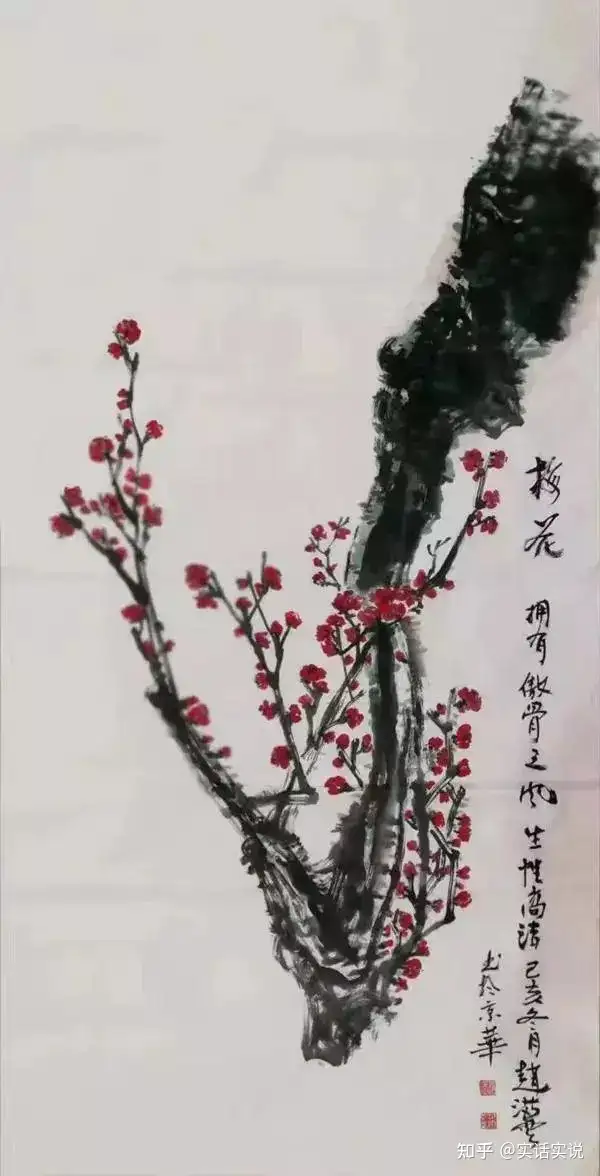 梅花 拥有傲骨之风 生性高洁 己亥冬月 趙
书於京華
知乎 @实话实说